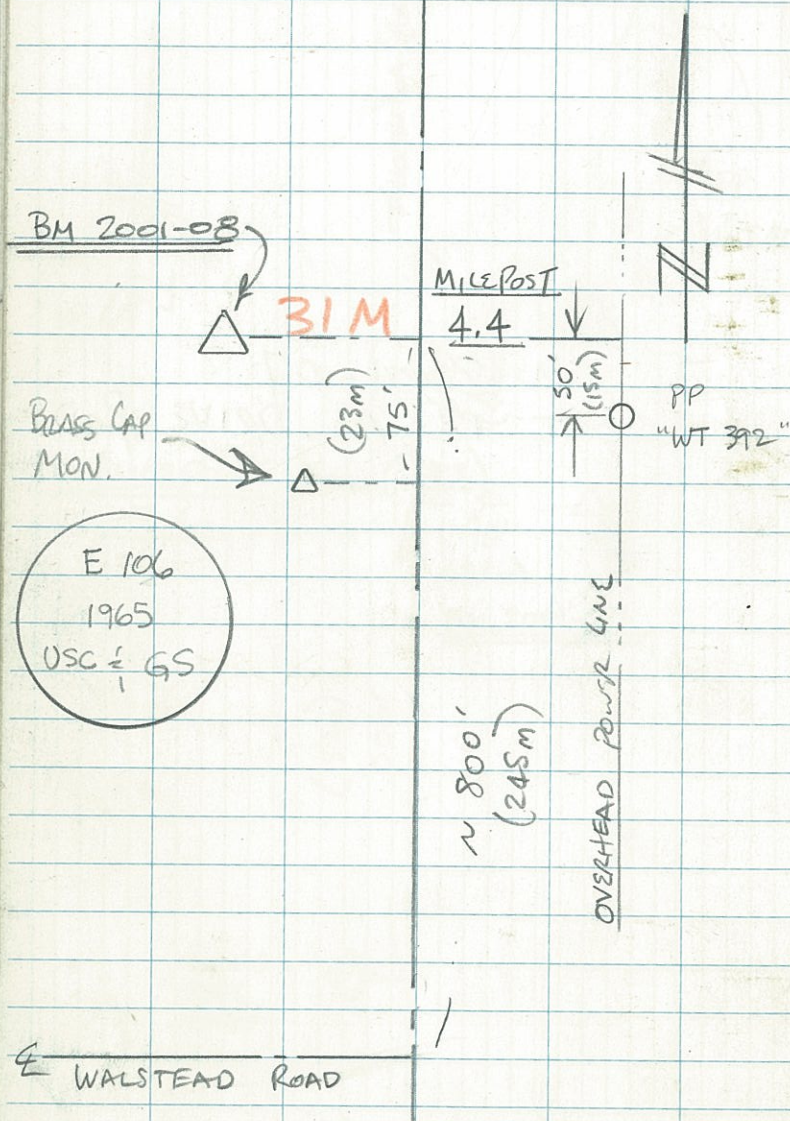 BM 2001-08
31 M
MILEPOST
4.4
50'
(15m)
PP
"WT 392"
(23m)
75'
BRASS CAP
MON.
N
E 106
1965
USC & GS
~ 800'
(245m)
OVERHEAD POWER LINE
℄ WALSTEAD ROAD